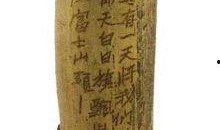 有一天将我們
天白日旗飄
富士山頭！